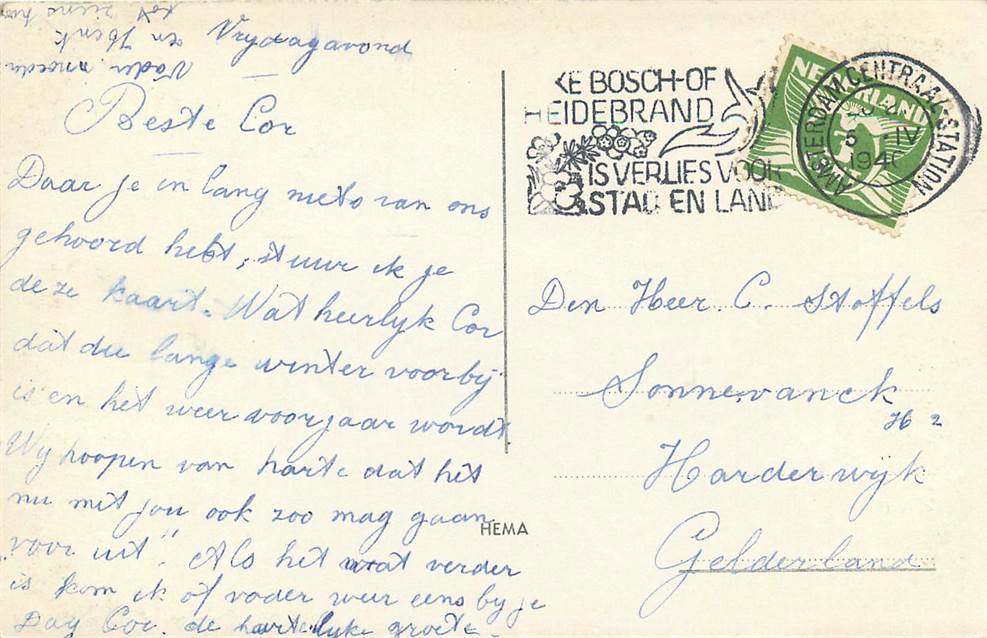 Vrydagavond
Beste Cor
Daar je in lang niets van ons
gehoord hebt, stuur ik je
deze kaart. Wat heerlyk Cor
dat die lange winter voorbij
is en het weer voorjaar wordt
Wy hoopen van harte dat het
nu met jou ook zoo mag gaan
"voor uit". Als het wat verder
is kom ik of vader weer eens by je
Dag Cor. de hartelyke groete.
Vader moeder
en Henk
tot ziens hoor
KE BOSCH-OF
HEIDEBRAND
IS VERLIES VOOR
STAD EN LAND
NEDERLAND
AMSTERDAM CENTRAAL STATION
5 IV
1940
Den Heer. C. Stoffels
Sonnevanck
H 2
Harderwyk
Gelderland
HEMA